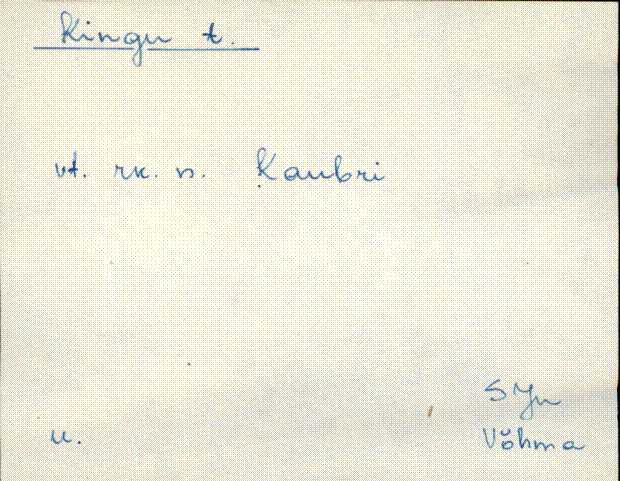 Kingu t.
vt. rk. n. Kaubri
SJn
u. Võhma